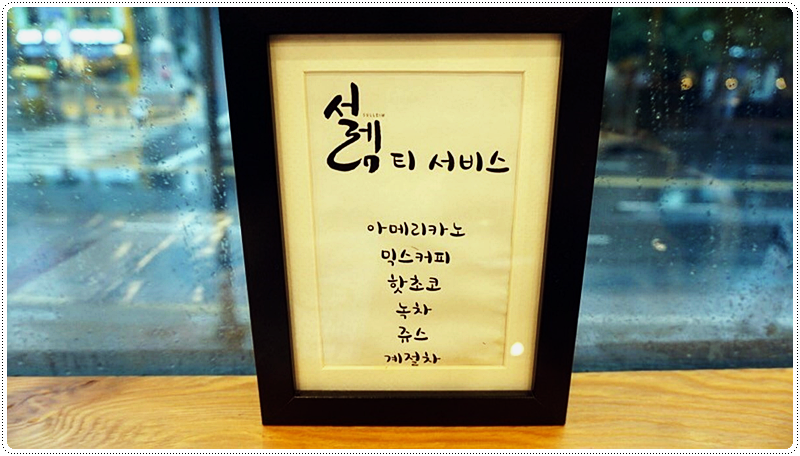 설렘 티 서비스
아메리카노
믹스커피
핫초코
녹차
쥬스
계절차